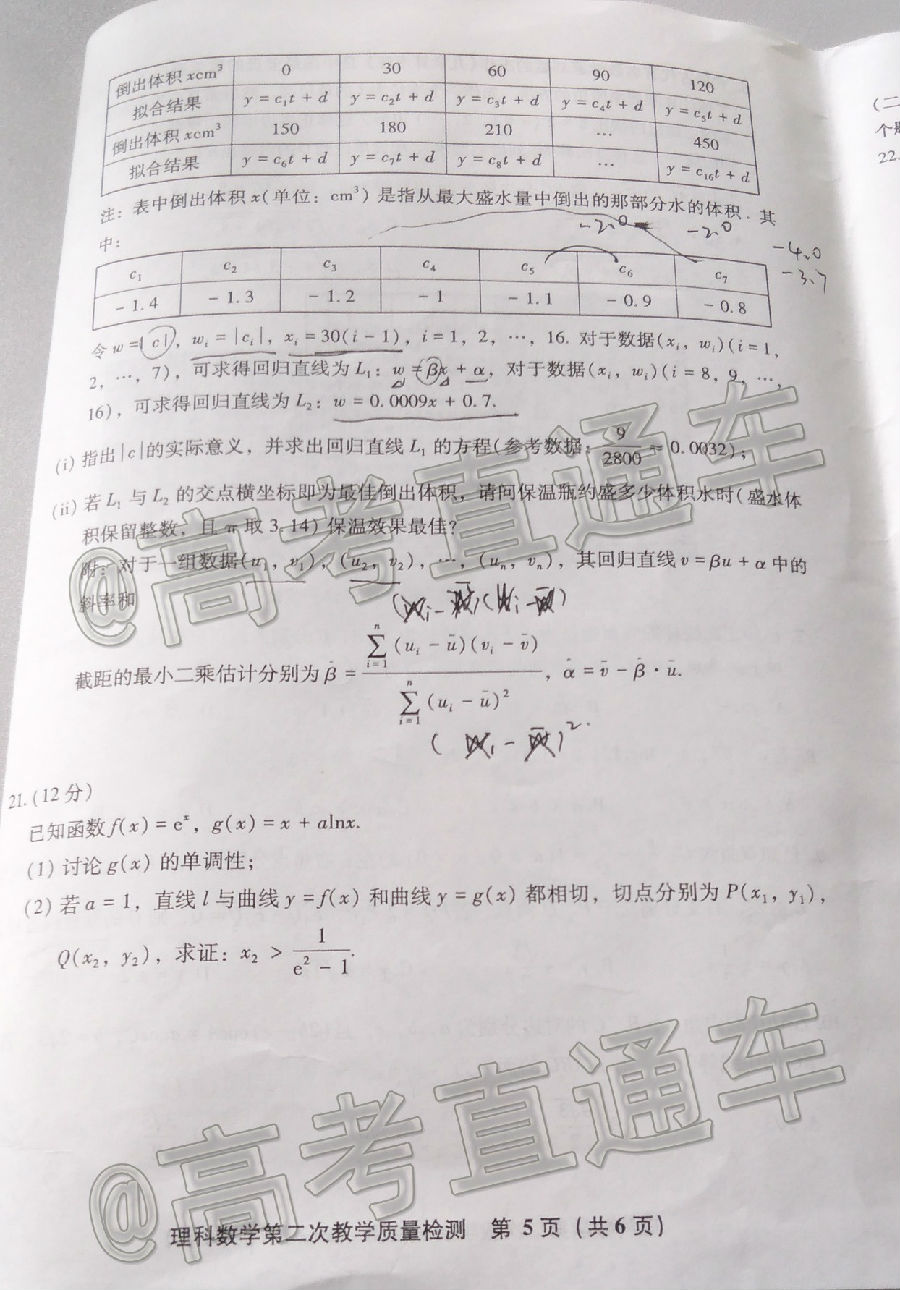 倒出体积 xcm³ 0 30 60 90 120
拟合结果 y = c₁t + d y = c₂t + d y = c₃t + d y = c₄t + d y = c₅t + d
倒出体积 xcm³ 150 180 210 … 450
拟合结果 y = c₆t + d y = c₇t + d y = c₈t + d … y = c₁₆t + d
注：表中倒出体积 x（单位：cm³）是指从最大盛水量中倒出的那部分水的体积．其
中：
-2.0 -2.0
-4.0
-3.7
c₁ c₂ c₃ c₄ c₅ c₆ c₇
-1.4 -1.3 -1.2 -1 -1.1 -0.9 -0.8
令 w=|c|，wᵢ=|cᵢ|，xᵢ=30(i-1)，i=1，2，…，16. 对于数据(xᵢ，wᵢ)(i=1，
2，…，7)，可求得回归直线为 L₁：w=βx+α，对于数据(xᵢ，wᵢ)(i=8，9，…，
16)，可求得回归直线为 L₂：w=0.0009x+0.7.
(i) 指出|c|的实际意义，并求出回归直线 L₁ 的方程(参考数据：9/2800≈0.0032)；
(ii) 若 L₁ 与 L₂ 的交点横坐标即为最佳倒出体积，请问保温瓶约盛多少体积水时(盛水体
积保留整数，且 π 取 3.14) 保温效果最佳?
附：对于一组数据(u₁，v₁)，(u₂，v₂)，…，(uₙ，vₙ)，其回归直线 v=βu+α 中的
斜率和
截距的最小二乘估计分别为 β̂ = ∑ⁿᵢ₌₁(uᵢ-ū)(vᵢ-v̄) / ∑ⁿᵢ₌₁(uᵢ-ū)²，α̂ = v̄-β̂·ū.
21.(12分)
已知函数 f(x)=eˣ，g(x)=x+alnx.
(1) 讨论 g(x) 的单调性；
(2) 若 a=1，直线 l 与曲线 y=f(x) 和曲线 y=g(x) 都相切，切点分别为 P(x₁，y₁)，
Q(x₂，y₂)，求证：x₂ > 1/(e²-1).
理科数学第二次教学质量检测 第5页（共6页）
（二
22.
@高考直通车
@高考直通车